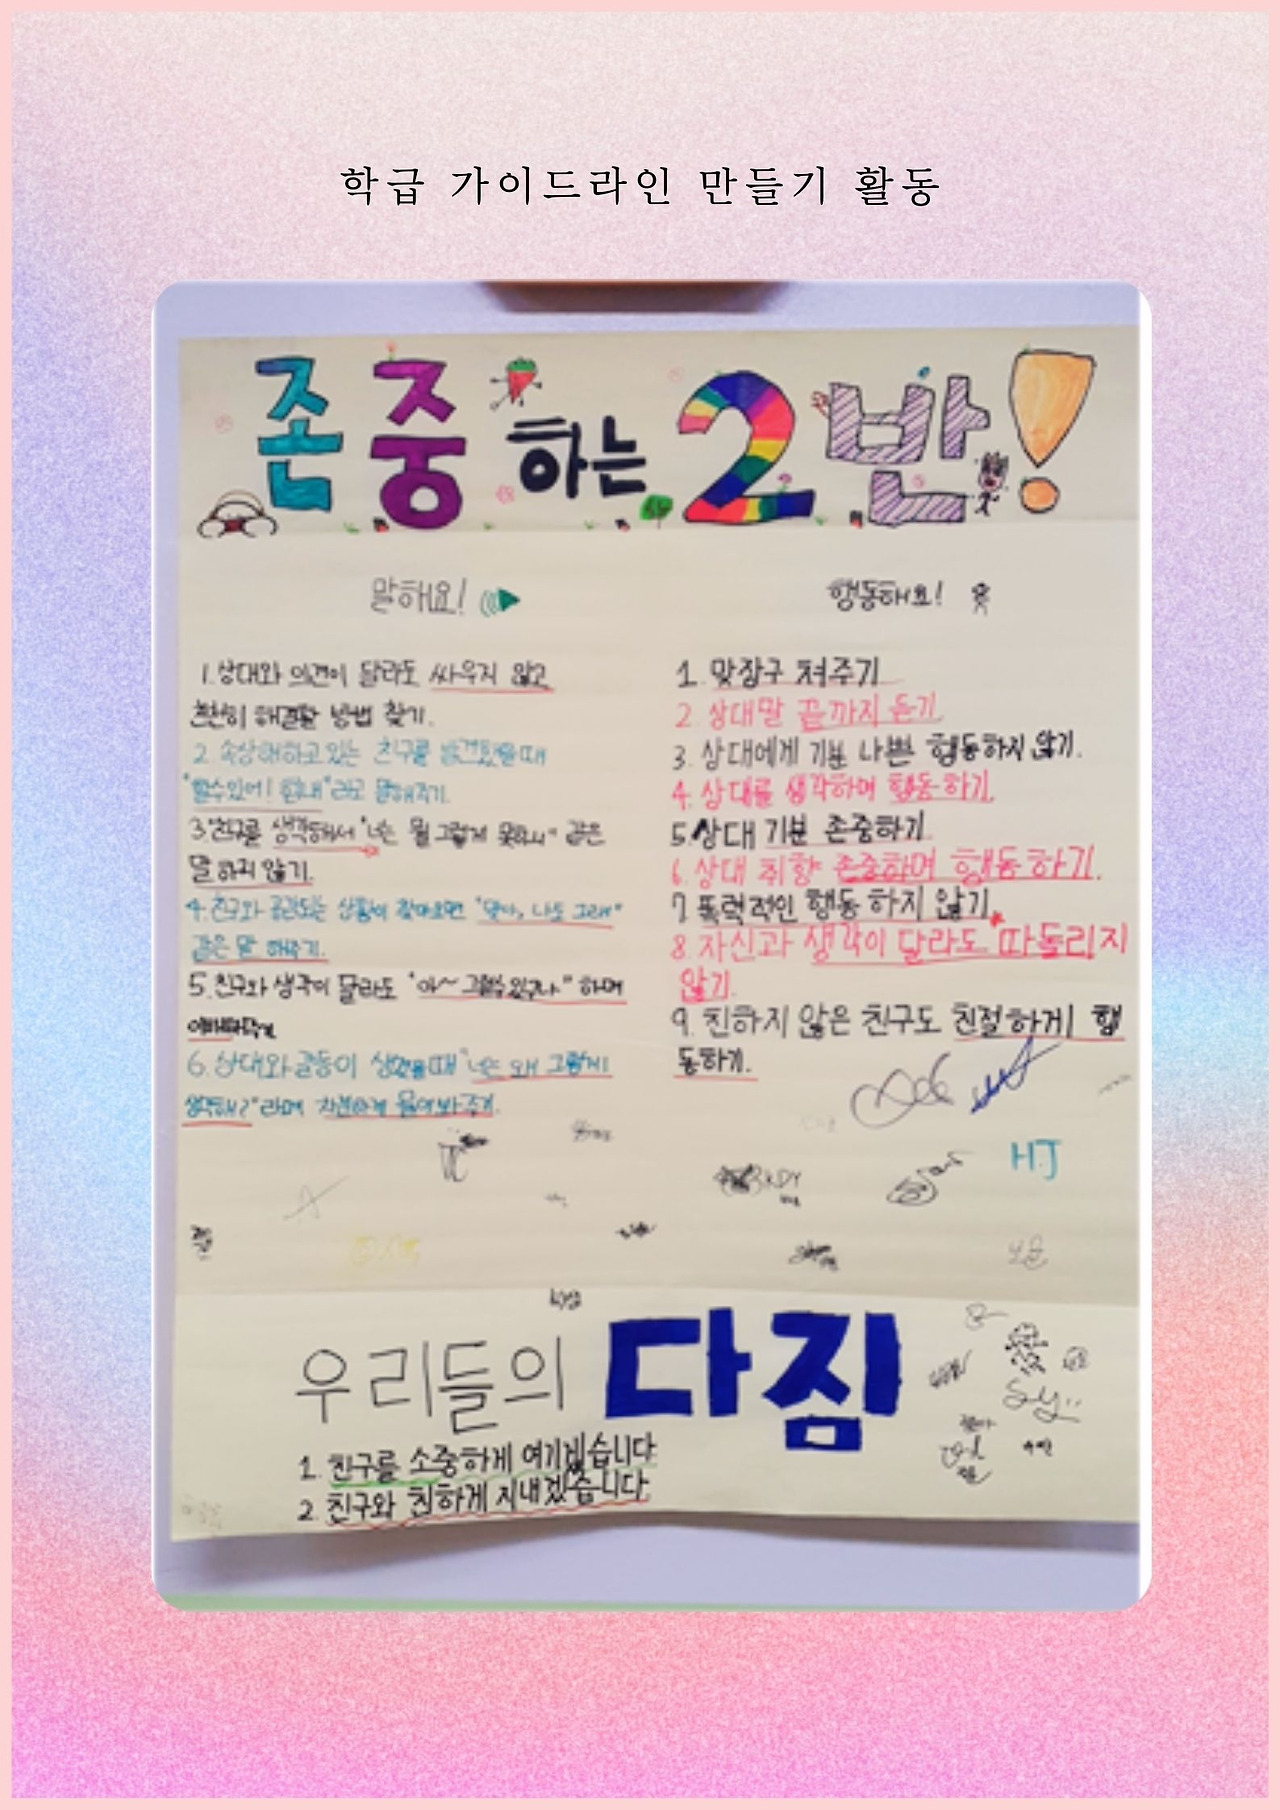 학급 가이드라인 만들기 활동
존중 하는 2반!
말해요!
1. 상대와 의견이 달라도 싸우지 않고
천천히 해결할 방법 찾기.
2. 속상해하고 있는 친구를 발견했을때
"할수있어! 힘내"라고 말해주기.
3. 친구를 생각해서 "너는 뭘 그렇게 못하니" 같은
말 하지 않기.
4. 친구와 공감되는 상황이 찾아오면 "맞아, 나도 그래"
같은 말 해주기.
5. 친구와 생각이 달라도 "아~ 그럴수있구나" 하며
6. 상대와 갈등이 생겼을때 "너는 왜 그렇게
생각해?"라며 친절하게 물어봐주기.
행동해요!
1. 맞장구 쳐주기
2 상대말 끝까지 듣기
3. 상대에게 기분 나쁜 행동하지 않기.
4. 상대를 생각하며 행동하기.
5. 상대 기분 존중하기
6. 상대 취향 존중하며 행동하기.
7. 폭력적인 행동 하지 않기.
8. 자신과 생각이 달라도 따돌리지
않기.
9. 친하지 않은 친구도 친절하게 행
동하기.
HJ
우리들의 다짐
1. 친구를 소중하게 여기겠습니다
2. 친구와 친하게 지내겠습니다